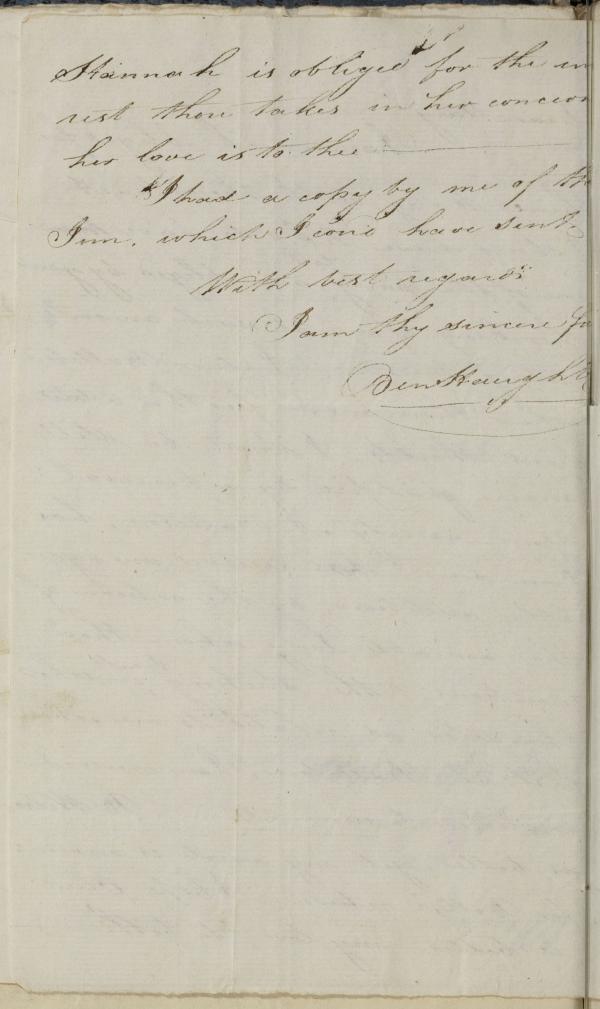 Hannah is obliged for the in
rest thou takes in her concern
her love is to thee
I had a copy by me of th
Inn. which I cou'd have sent
With best regards
I am thy sincere fr
Ben Haught